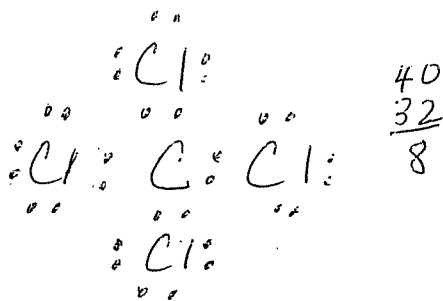 Cl
Cl C Cl
Cl
40
32
8